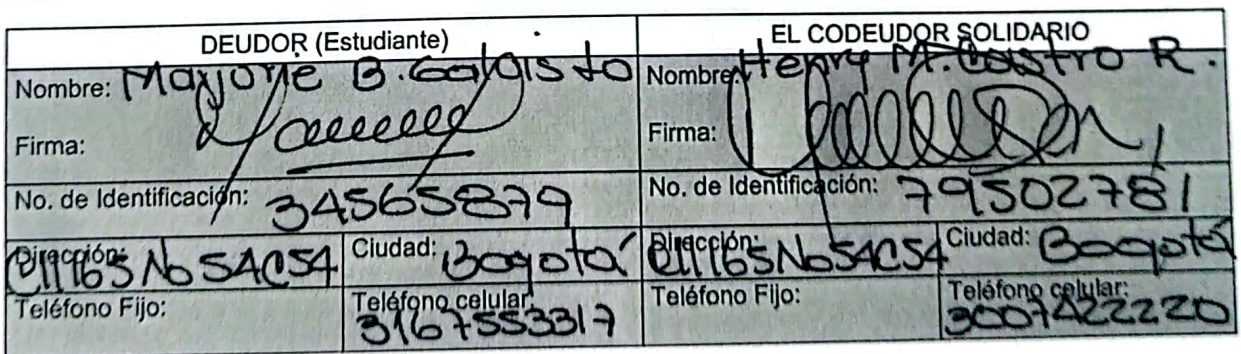 DEUDOR (Estudiante) EL CODEUDOR SOLIDARIO
Nombre: Marjorie B. Nombre: Henry M. Castro R.
Firma: Firma:
No. de Identificación: 34565879 No. de Identificación: 79502781
Dirección: Cll 165 No 54C54 Ciudad: Bogotá Dirección: Cll 165 No 54C54 Ciudad: Bogotá
Teléfono Fijo: Teléfono celular: 3167553317 Teléfono Fijo: Teléfono celular: 3007422220